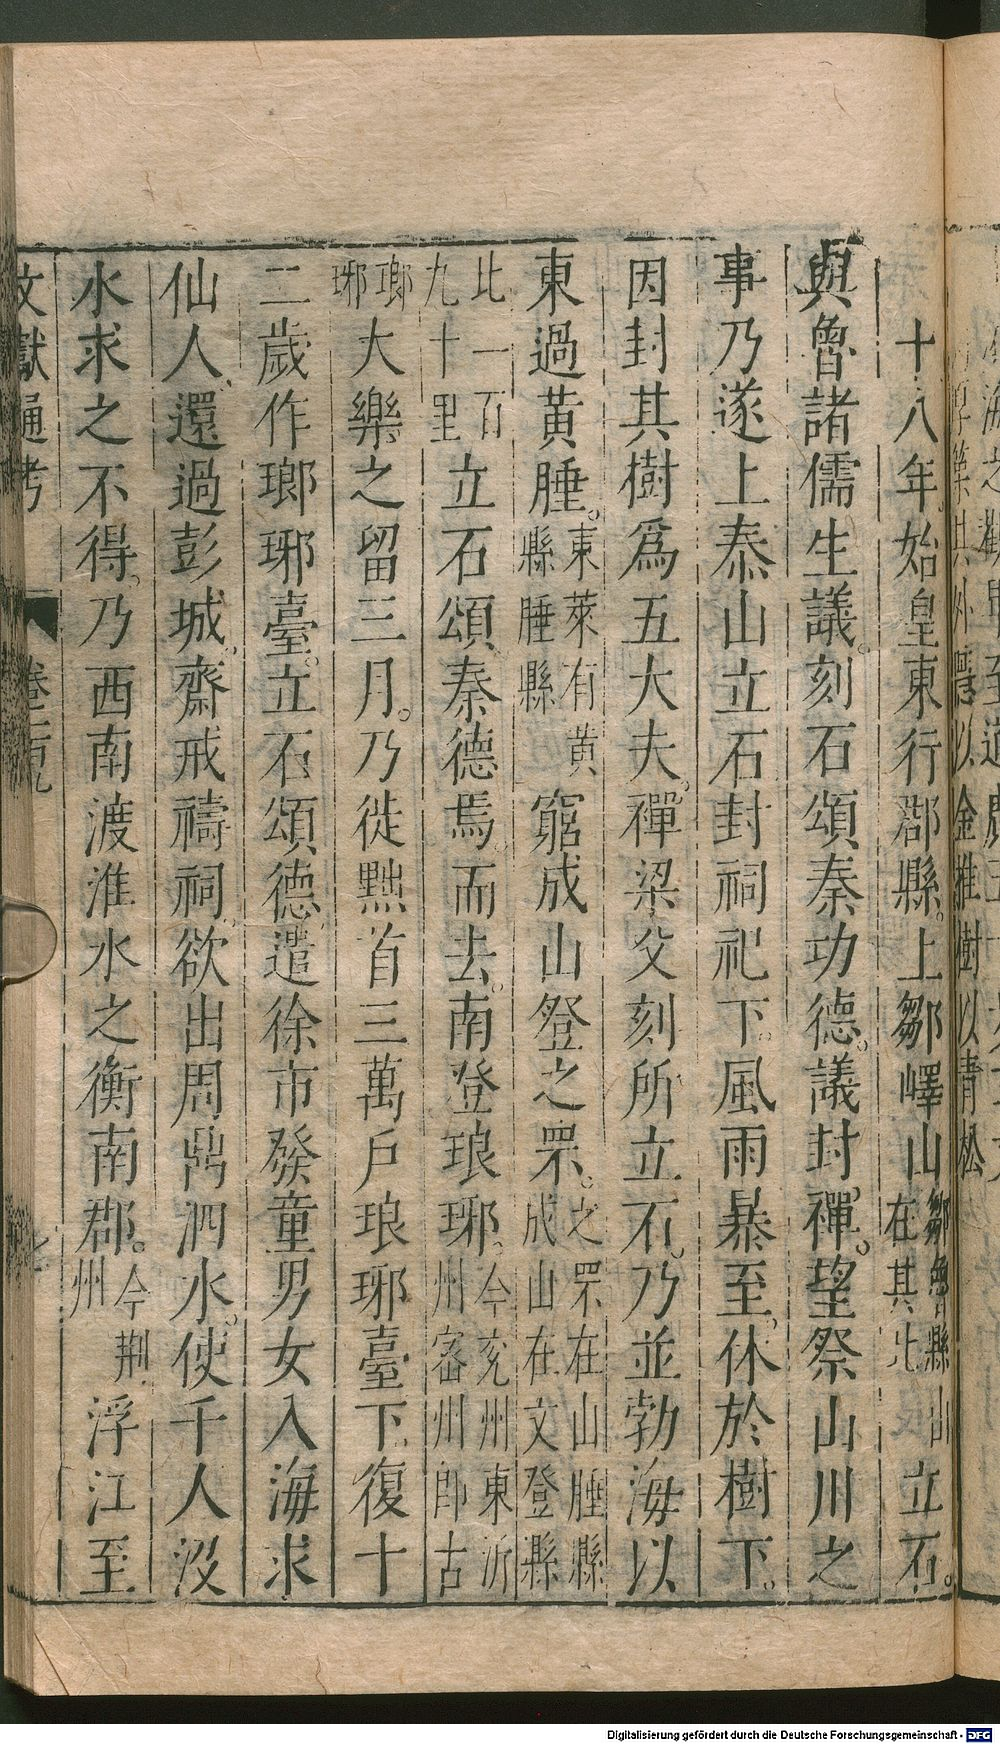 十八年始皇東行郡縣。上鄒嶧山鄒魯縣山在其北立石。
與魯諸儒生議。刻石頌秦功德。議封禪。望祭山川之
事乃遂上泰山立石封祠祀下。風雨暴至。休於樹下。
因封其樹爲五大夫。禪梁父刻所立石。乃並勃海以
東過黃腄。東萊有黃縣腄縣窮成山登之罘。之罘在山腄縣成山在文登縣
北一百九十里立石頌秦德焉。而去。南登琅琊。今兗州東沂州密州即古
瑯琊大樂之留三月。乃徙黔首三萬戶琅琊臺下。復十
二歲作瑯琊臺。立石頌德。遣徐市發童男女入海求
仙人還過彭城。齋戒禱祠。欲出周鼎泗水。使千人沒
水求之不得。乃西南渡淮水之衡南郡。今荆州浮江至
文獻通考
以金椎樹以青松
Digitalisierung gefördert durch die Deutsche Forschungsgemeinschaft - DFG